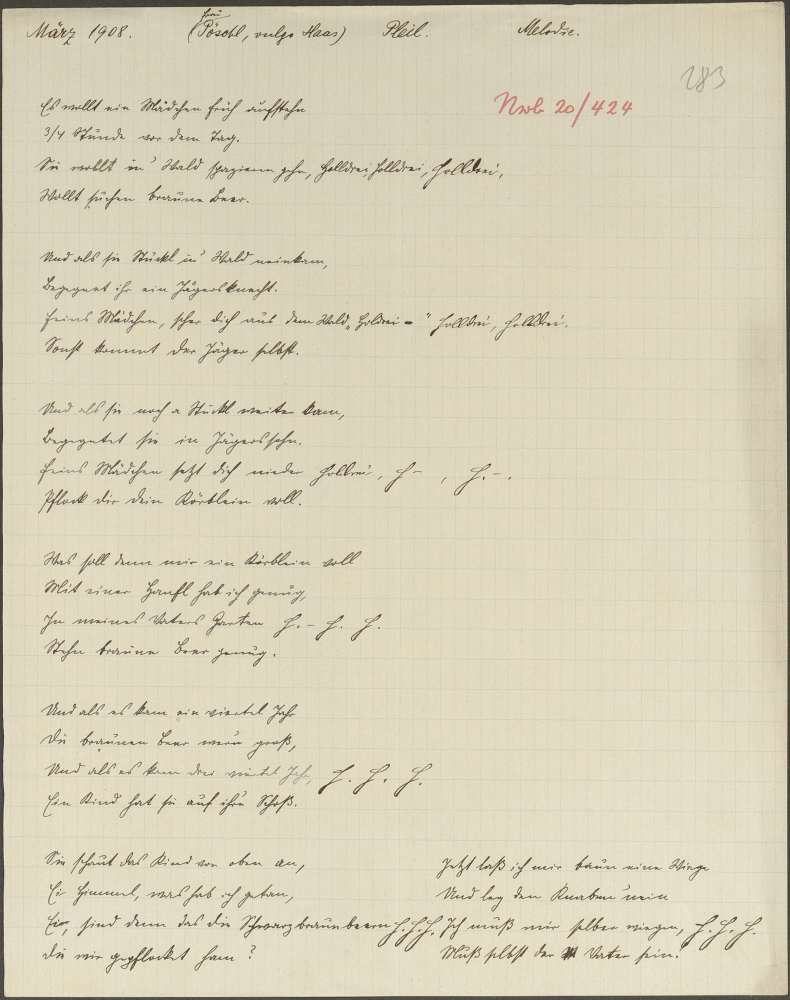 März 1908. (Frau Pöschl, vulgo Haas) Pleil. Melodie.
283
Nwb 20/424
Es wollt ein Mädchen früh aufstehn
3/4 Stunde vor dem Tag.
Sie wollt in' Wald spazieren gehn, holldrei, holldrei, holldrei,
Wollt suchen braune Beer.
Und als sie Stückl in' Wald neinkam,
Begegnet ihr ein Jägersknecht.
Feins Mädchen, scher dich aus dem Wald, "holdrei –" holldrei, holldrei.
Sonst kommt der Jäger selbst.
Und als sie noch a Stückl weiter kam,
Begegnet sie in Jägerssohn.
Feins Mädchen setzt dich nieder holldrei, h – , h. –.
Pflock dir dein Körblein voll.
Was soll denn mir ein Körblein voll
Mit einer Hanfl hab ich genug,
In meines Vaters Garten h. – h. h.
Stehn braune Beer genug.
Und als es kam ein viertel Jahr
Die braunen Beer wern groß,
Und als es kam drei viertel Jahr, h. h. h.
Ein Kind hat sie auf ihrn Schoß.
Sie schaut das Kind von oben an,
Ei Himmel, was hab ich getan,
Ei, sind denn das die Schwarzbraunbeern h. h. h.
Die wir gepflocket ham?
Jetzt laß ich mir baun eine Wiege
Und leg den Knaben 'nein
Ich muß mir selber wiegen, h. h. h.
Muß selbst der Vater sein.